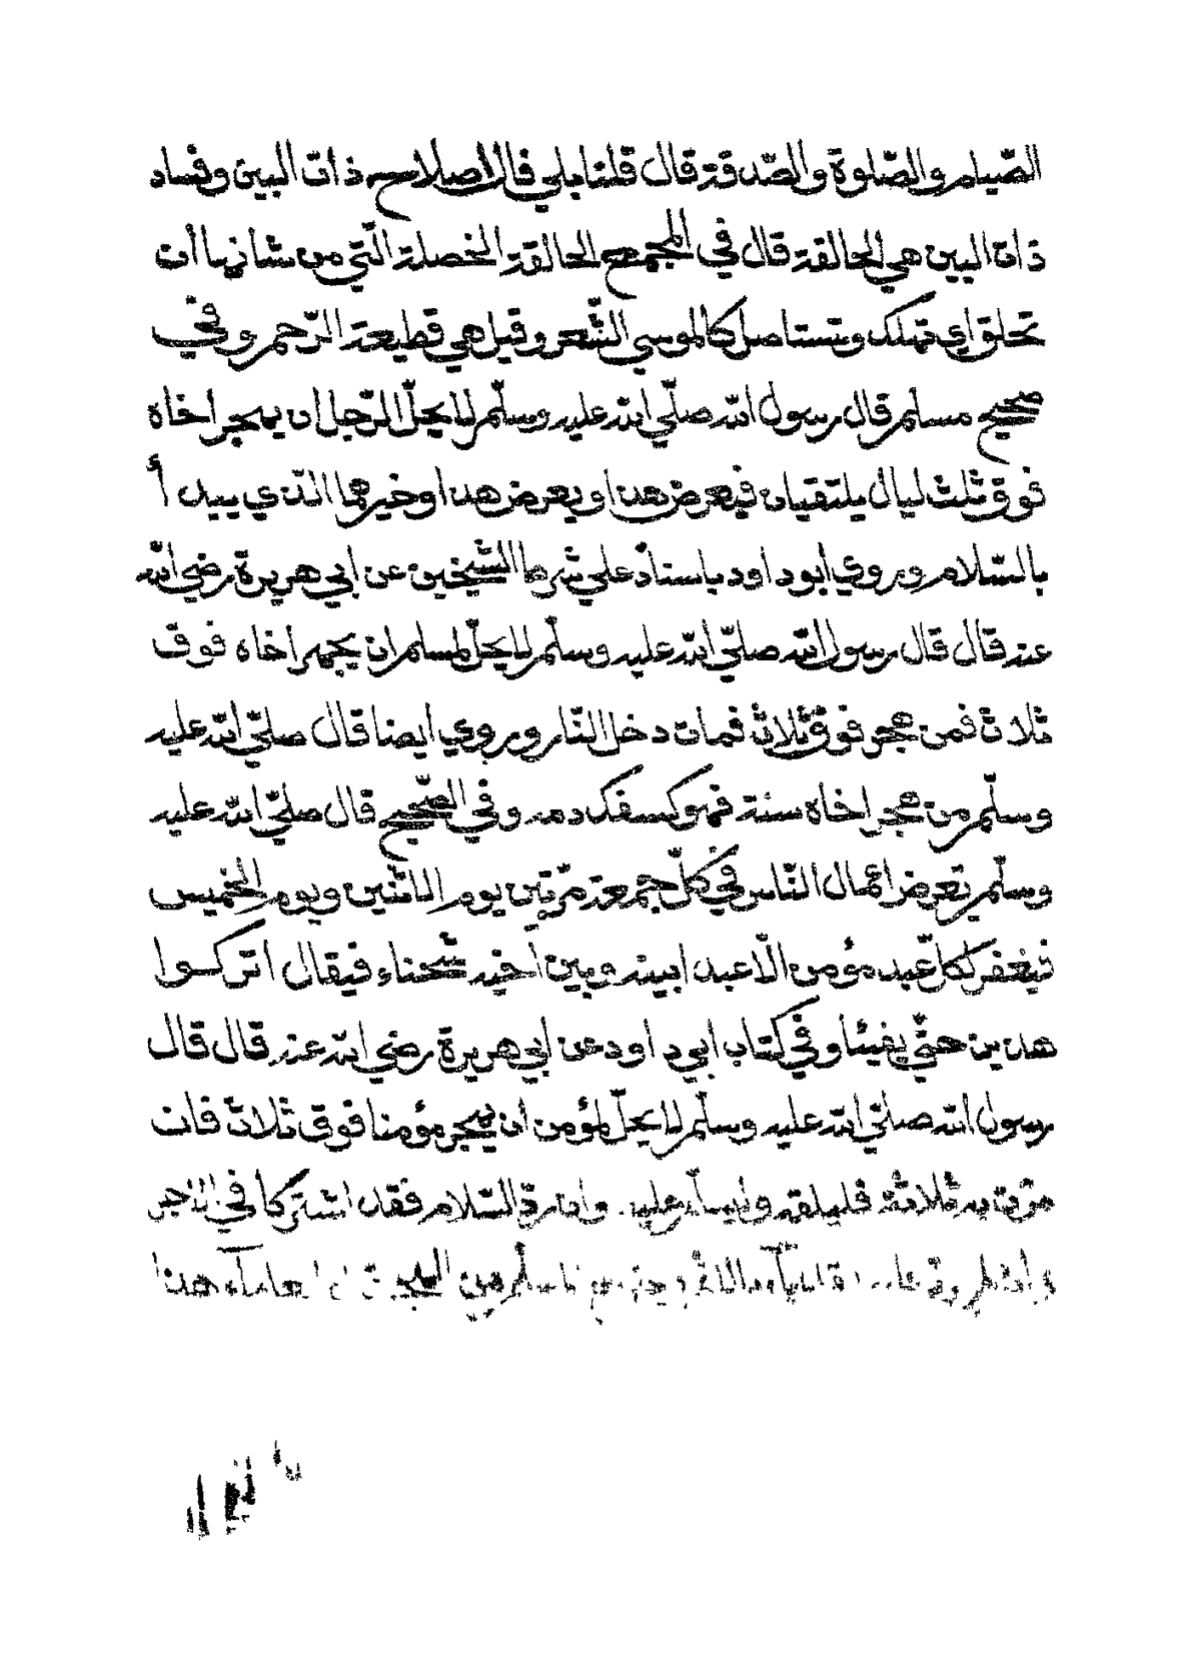 الصّيام والصّلوة والصّدقة قال قلنا بلي قال اصلاح ذات البين وفساد
ذات البين هي الحالقة قال في المجمع الحالقة الخصلة الّتي من شانها أن
تحلق اي تهلك وتستاصل كالموسي الشّعر وقيل هي قطيعة الرّحم وفي
صحيح مسلم قال رسول الله صلّي الله عليه وسلّم لا يحلّ الرّجل ان يهجر اخاه
فوق ثلث ليال يلتقيان فيعرض هذا ويعرض هذا وخيرهما الذي يبدأ
بالسّلام وروي أبو داود باسناد علي شرط الشّيخين عن ابي هريرة رضي الله
عنه قال قال رسول الله صلّي الله عليه وسلّم لا يحلّ لمسلم ان يهجر اخاه فوق
ثلاث فمن هجر فوق ثلاث فمات دخل النّار وروي أيضا قال صلّي الله عليه
وسلّم من هجر اخاه سنة فهو كسفك دمه وفي الصّحيح قال صلّي الله عليه
وسلّم تعرض اعمال النّاس في كلّ جمعة مرّتين يوم الاثنين ويوم الخميس
فيغفر لكلّ عبد مؤمن الّا عبدا بينه وبين أخيه شحناء فيقال اتركوا
هذين حتّي يفيئا وفي كتاب ابي داود عن ابي هريرة رضي الله عنه قال قال
رسول الله صلّي الله عليه وسلّم لا يحلّ لمؤمن أن يهجر مؤمنا فوق ثلاث فان
مرّت به ثلاثة فليلقه وليسلّم عليه وان ردّ السّلام فقد اشتركا في الاجر
سلّم من الهجرة هذا